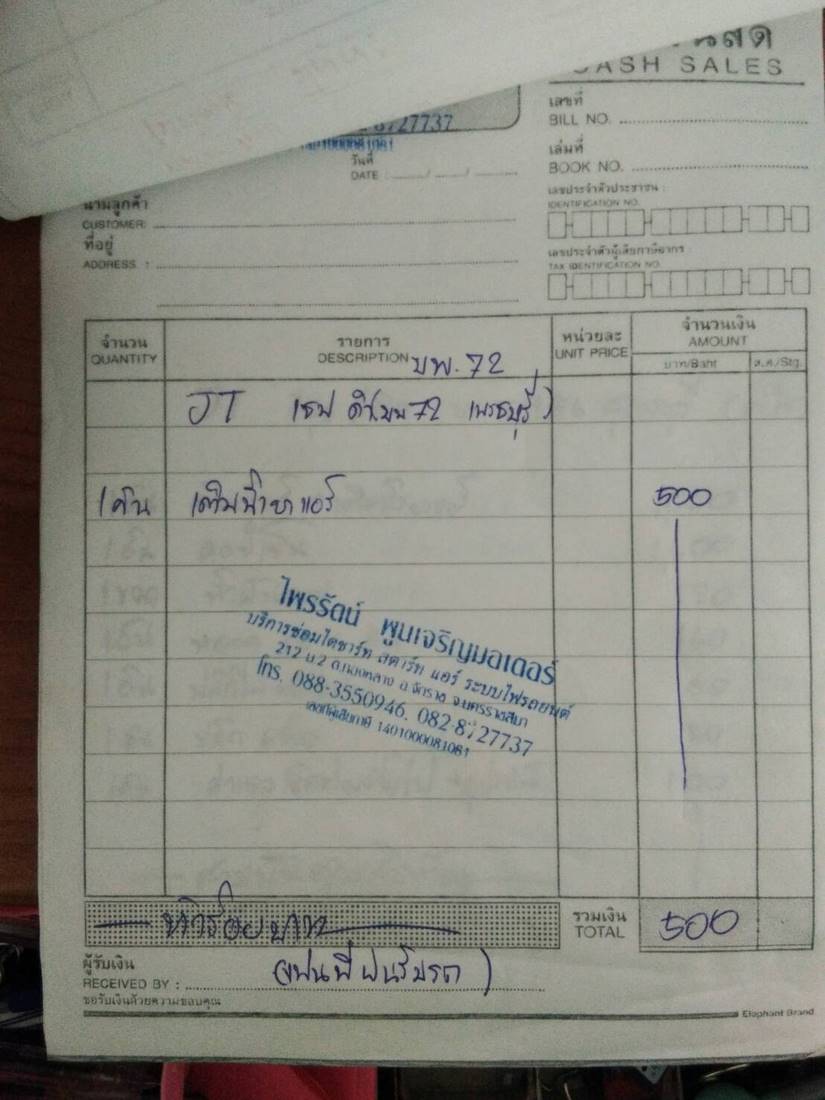 CASH SALES
เลขที่
BILL NO.
8727737
วันที่
DATE :
เล่มที่
BOOK NO.
นามลูกค้า
CUSTOMER:
ที่อยู่
ADDRESS :
เลขประจำตัวประชาชน :
IDENTIFICATION NO.
เลขประจำตัวผู้เสียภาษีอากร :
TAX IDENTIFICATION NO.
จำนวน รายการ หน่วยละ จำนวนเงิน
QUANTITY DESCRIPTION UNIT PRICE AMOUNT
บาท/Baht ส.ต./Stg.
บพ.72
JT (บพ 72 เพรชบุรี)
1 คัน เติมน้ำยาแอร์ 500
ไพรรัตน์ พูนเจริญมอเตอร์
บริการซ่อมไดชาร์ท สตาร์ท แอร์ ระบบไฟรถยนต์
212 ม.2 อ.จักราช จ.นครราชสีมา
โทร. 088-3550946, 082-8727737
เลขที่ผู้เสียภาษี 1401000081081
ห้าร้อยบาท
รวมเงิน
TOTAL 500
ผู้รับเงิน
RECEIVED BY :
ขอรับเงินด้วยความขอบคุณ
Elephant Brand